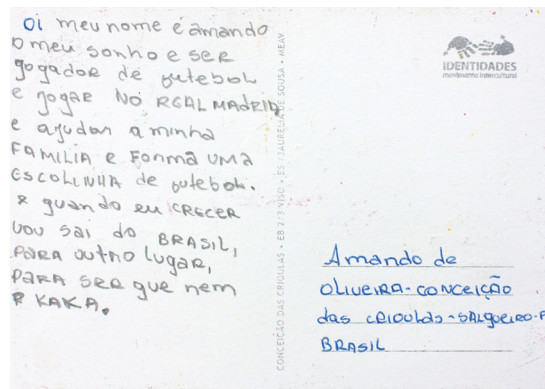 oi meu nome é amando
o meu sonho e ser
gogador de futebol
e jogar NO REAL MADRID,
e ajudar a minha
FAMILIA e FORMA UMA
ESCOLINHA de futebol.
e quando eu CRECER
vou sai do BRASIL,
PARA outro lugar,
PARA SER que nem
KAKA.
CONCEIÇÃO DAS CRIOULAS • EB 2/3 VISO • ES / AURÉLIA DE SOUSA • MEAV
IDENTIDADES
movimento intercultural
Amando de
OLIVEIRA-CONCEIÇÃO
das CRIOULAS-SALGUEIRO-P
BRASIL